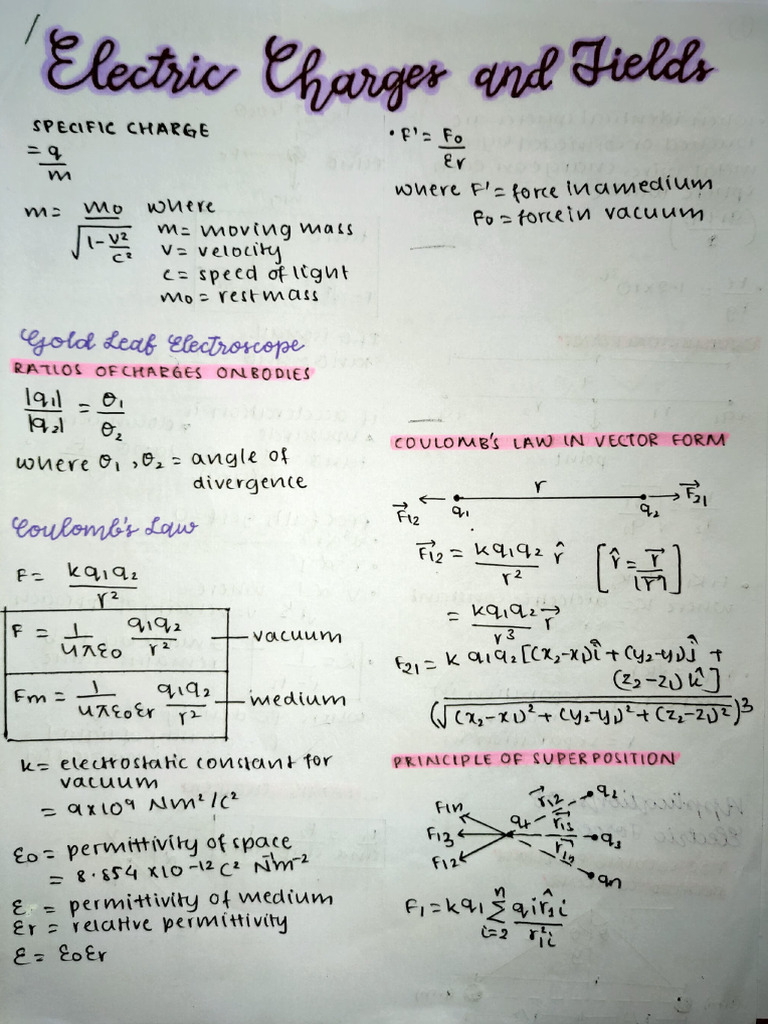 Electric Charges and Fields
SPECIFIC CHARGE
= q/m
m = m₀/√(1-v²/c²) where
m = moving mass
v = velocity
c = speed of light
m₀ = rest mass
Gold Leaf Electroscope
RATIOS OF CHARGES ON BODIES
|q₁|/|q₂| = θ₁/θ₂
where θ₁, θ₂ = angle of
divergence
Coulomb's Law
F = kq₁q₂/r²
F = 1/4πε₀ q₁q₂/r² — vacuum
Fm = 1/4πε₀εr q₁q₂/r² — medium
k = electrostatic constant for
vacuum
= 9×10⁹ Nm²/C²
ε₀ = permittivity of space
= 8.854 ×10⁻¹² C² N⁻¹m⁻²
ε = permittivity of medium
εr = relative permittivity
ε = ε₀εr
• F' = F₀/εr
where F' = force in a medium
F₀ = force in vacuum
COULOMB'S LAW IN VECTOR FORM
r
F⃗₁₂ q₁ q₂ F⃗₂₁
F⃗₁₂ = kq₁q₂/r² r̂ [r̂ = r⃗/|r⃗|]
= kq₁q₂/r³ r⃗
F₂₁ = k q₁q₂[(x₂-x₁)î + (y₂-y₁)ĵ +
(z₂-z₁)k̂]
(√(x₂-x₁)²+(y₂-y₁)²+(z₂-z₁)²)³
PRINCIPLE OF SUPERPOSITION
F₁n r⃗₁₂ q₂
F₁₃ q₁ r⃗₁₃ q₃
F₁₂ r⃗₁n qn
F₁ = kq₁ Σⁿᵢ₌₂ qᵢr̂₁ᵢ/r²₁ᵢ